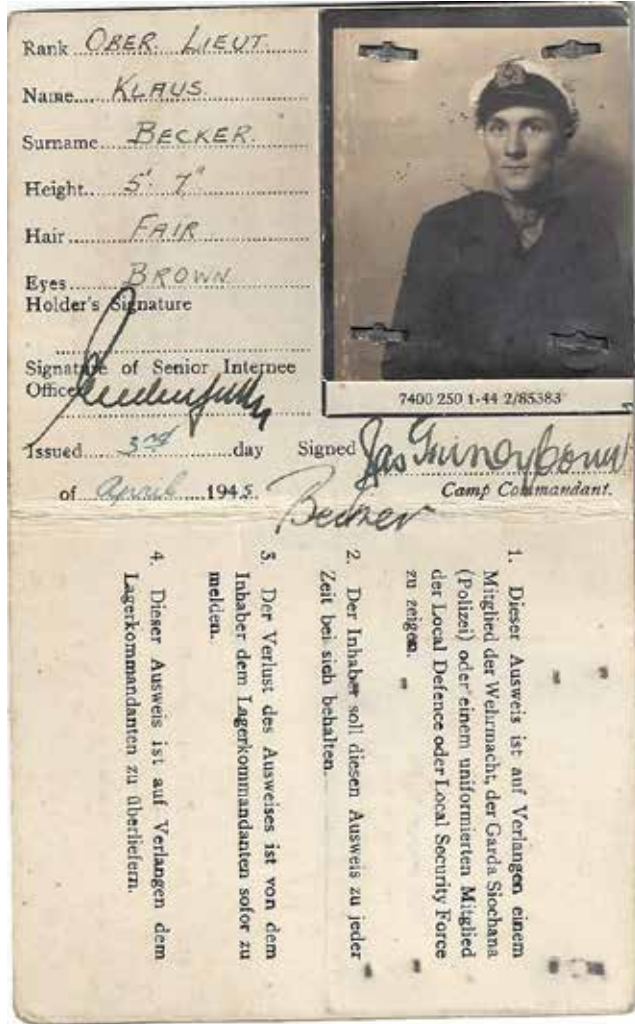 Rank OBER. LIEUT.
Name KLAUS.
Surname BECKER.
Height 5' 7"
Hair FAIR
Eyes BROWN
Holder's Signature
Signature of Senior Internee
Officer
7400 250 1-44 2/85383
Issued 3rd day
Signed
of April 1945.
Camp Commandant.
Becker
1. Dieser Ausweis ist auf Verlangen einem
Mitglied der Wehrmacht, der Garda Siochana
(Polizei) oder einem uniformierten Mitglied
der Local Defence oder Local Security Force
zu zeigen.
2. Der Inhaber soll diesen Ausweis zu jeder
Zeit bei sich behalten.
3. Der Verlust des Ausweises ist von dem
Inhaber dem Lagerkommandanten sofor zu
melden.
4. Dieser Ausweis ist auf Verlangen dem
Lagerkommandanten zu überliefern.